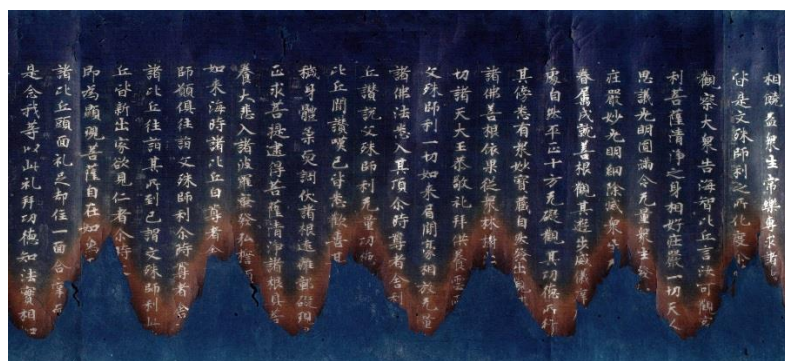 益衆生常樂專求者
皆是文殊師利之所化度尒
觀察大衆告海智比丘言汝可觀
利菩薩清淨之身相好莊嚴一切天人
思議光明圓滿令无量衆生發
莊嚴妙光明網除滅衆生
眷屬成就善根觀其遊步威儀
處自然平正十方无礙觀其功德所行
其傍悉有衆妙寶藏自然發出
諸佛善根依果從衆林樹
切諸天大王恭敬礼拜供養雲
文殊師利一切如來眉間豪相放无量
諸佛法悉入其頂尒時尊者舍利
丘讚說文殊師利无量功德
比丘聞讚嘆已皆悉歡喜其
穢身體柔耎調伏諸根遠離
正求菩提逮得菩薩清淨諸根具菩
養大悲入諸波羅蜜發弘誓
如來海時諸比丘白尊者
師願俱往詣文殊師利尒時尊者舍
諸比丘往詣其所到已謂文殊師利此
丘皆新出家欲見仁者尒時
即為顯現菩薩自在如
諸比丘頭面礼足却住一面合
是念我等以此礼拜功德知法實相